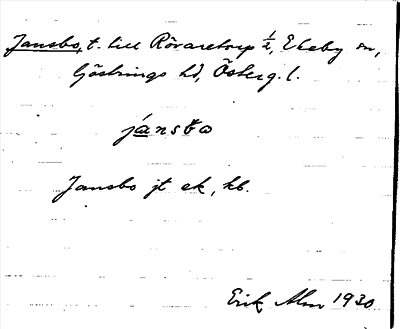 Jansbo, t. till Rövaretorp ½, Ekeby sn,
Göstrings hd, Österg. l.
jánsbω
Jansbo jt ek, hb.
Erik Alm 1930